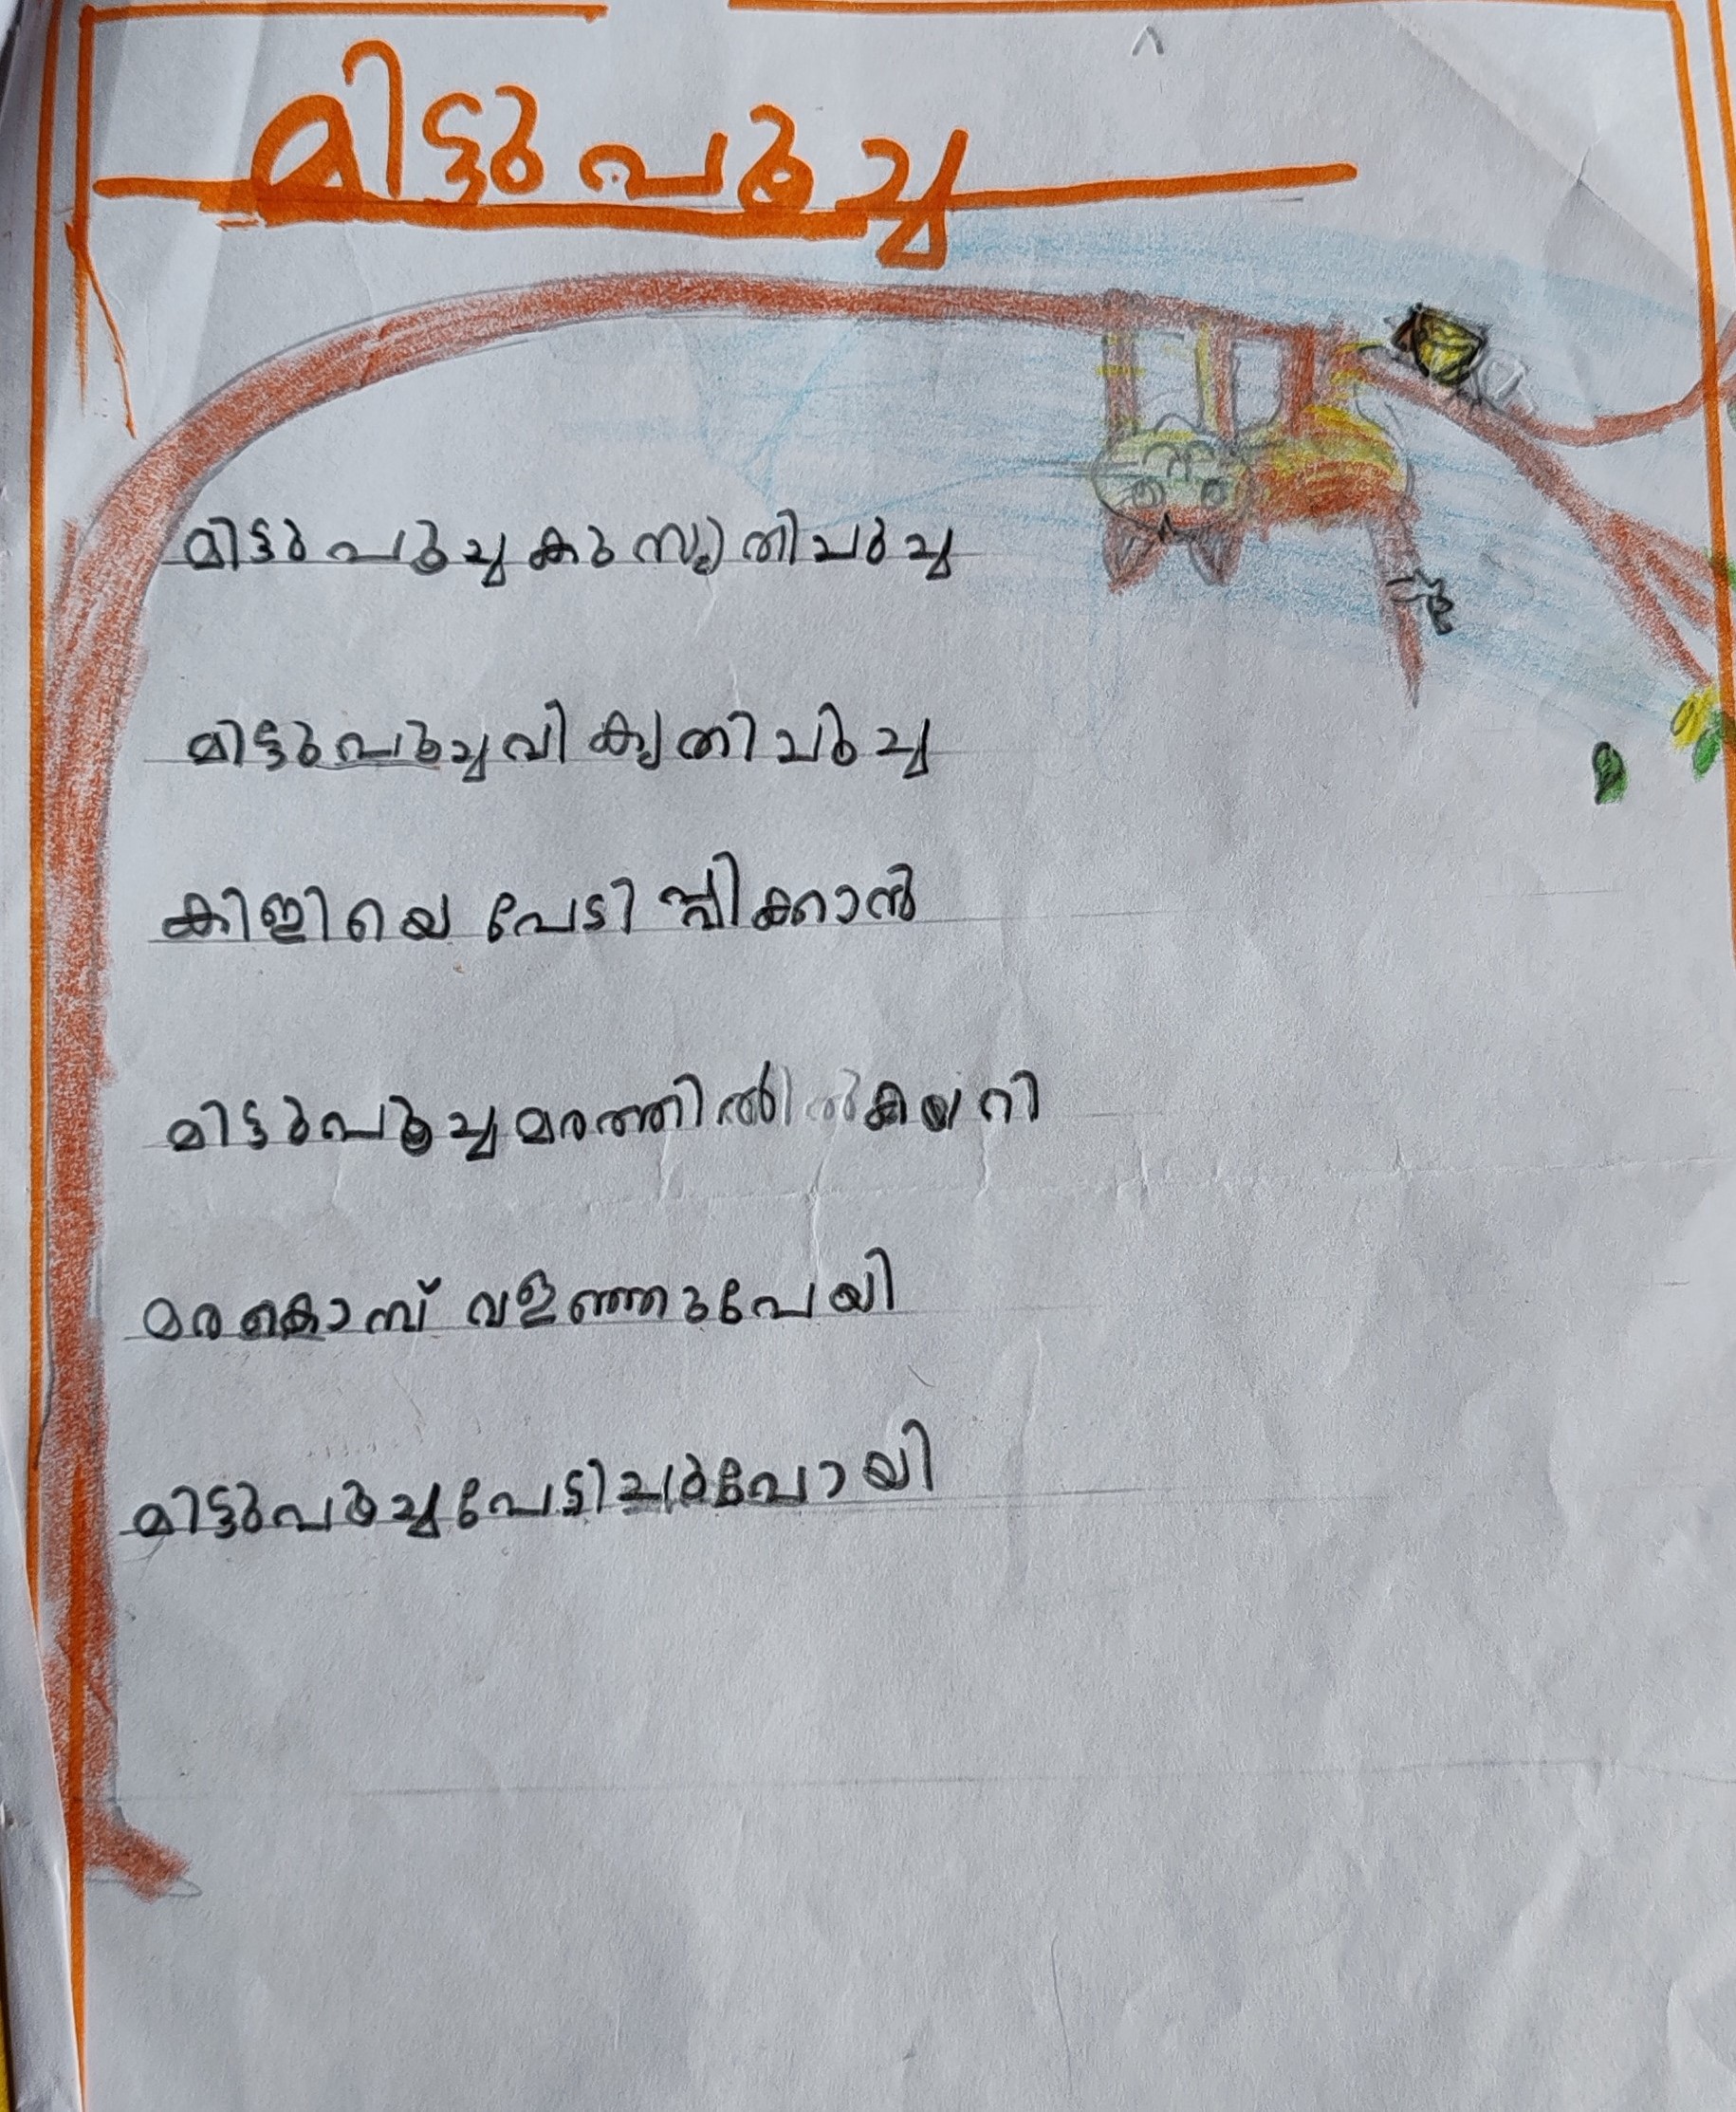 മിട്ടു പൂച്ച
മിട്ടു പൂച്ച കുസൃതി പൂച്ച
മിട്ടു പൂച്ച വികൃതി പൂച്ച
കിളിയെ പേടിപ്പിക്കാൻ
മിട്ടു പൂച്ച മരത്തിൽ കയറി
മരകൊമ്പ് വളഞ്ഞുപേയി
മിട്ടു പൂച്ച പേടിച്ചുപോയി